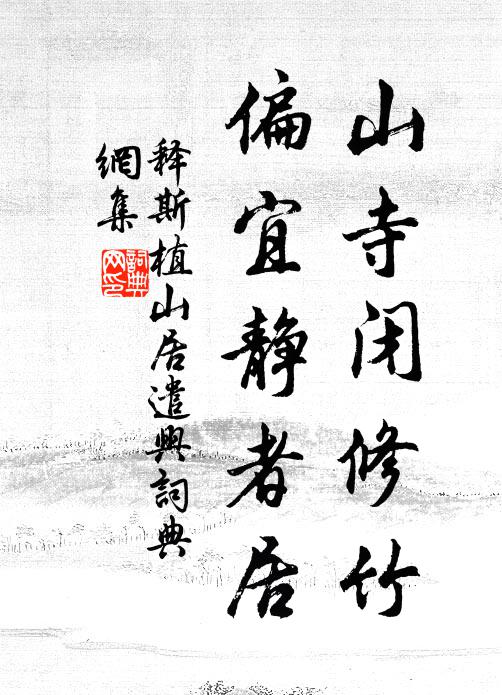 山寺闭修竹
偏宜静者居
释斯植山居遣興詞典
網集
詞典
网印